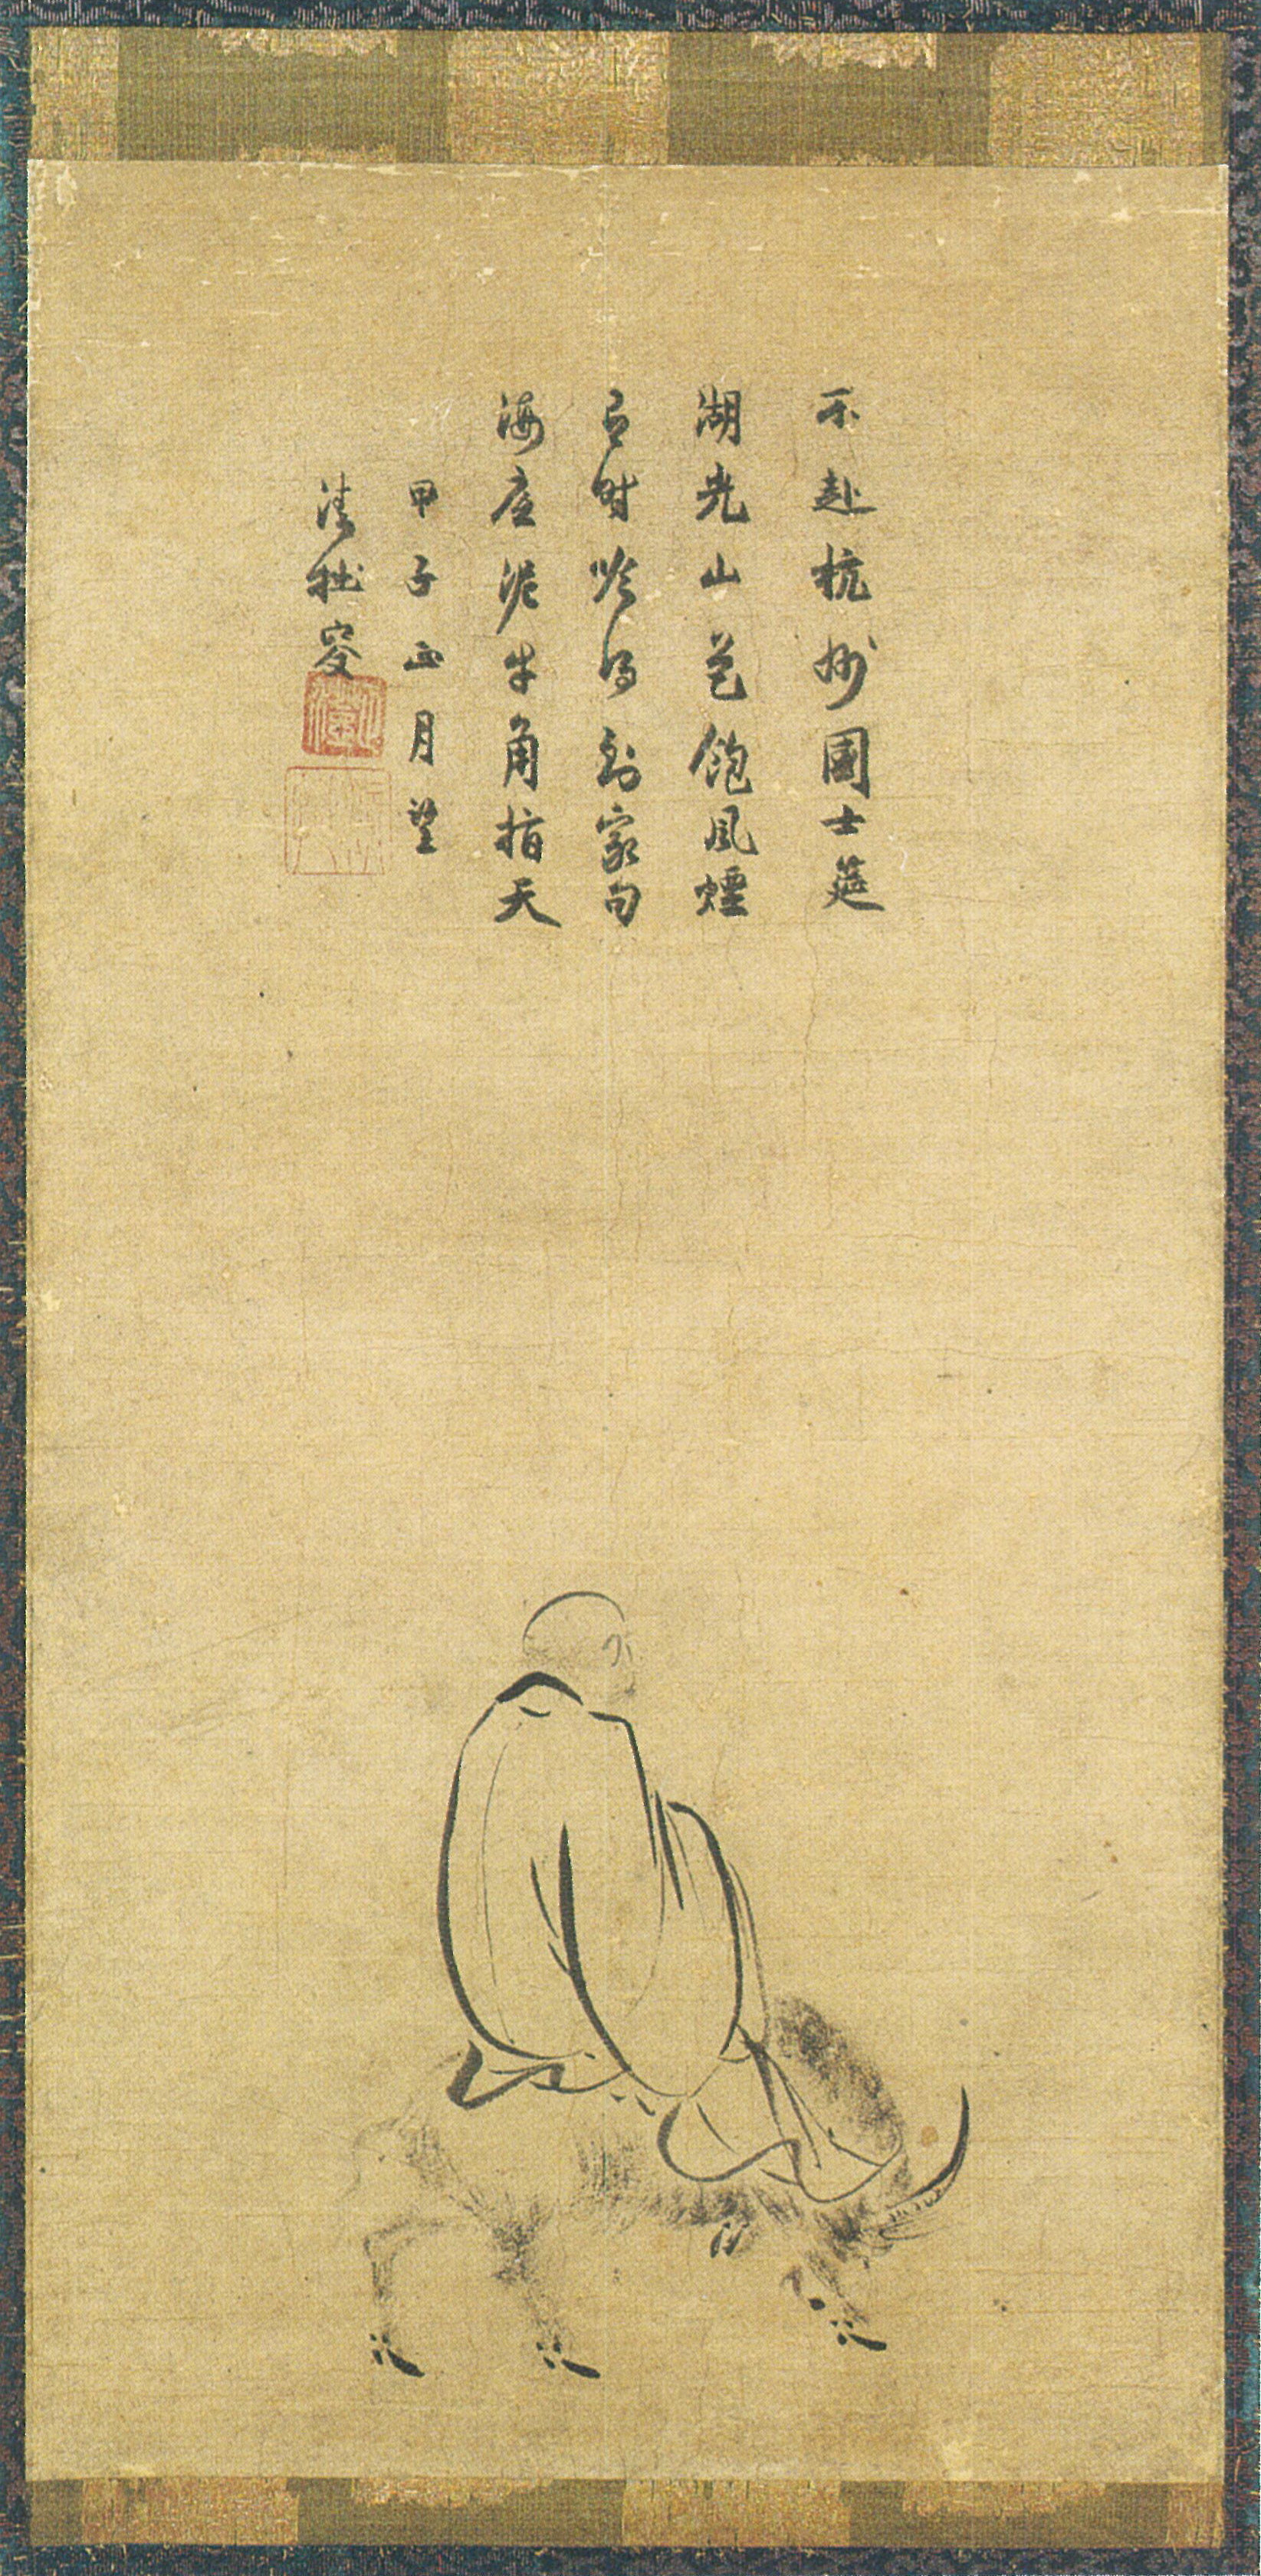 不赴杭州國士筵
湖光山色飽風煙
有時吟得到家句
海底泥牛角指天
甲子正月望
清拙